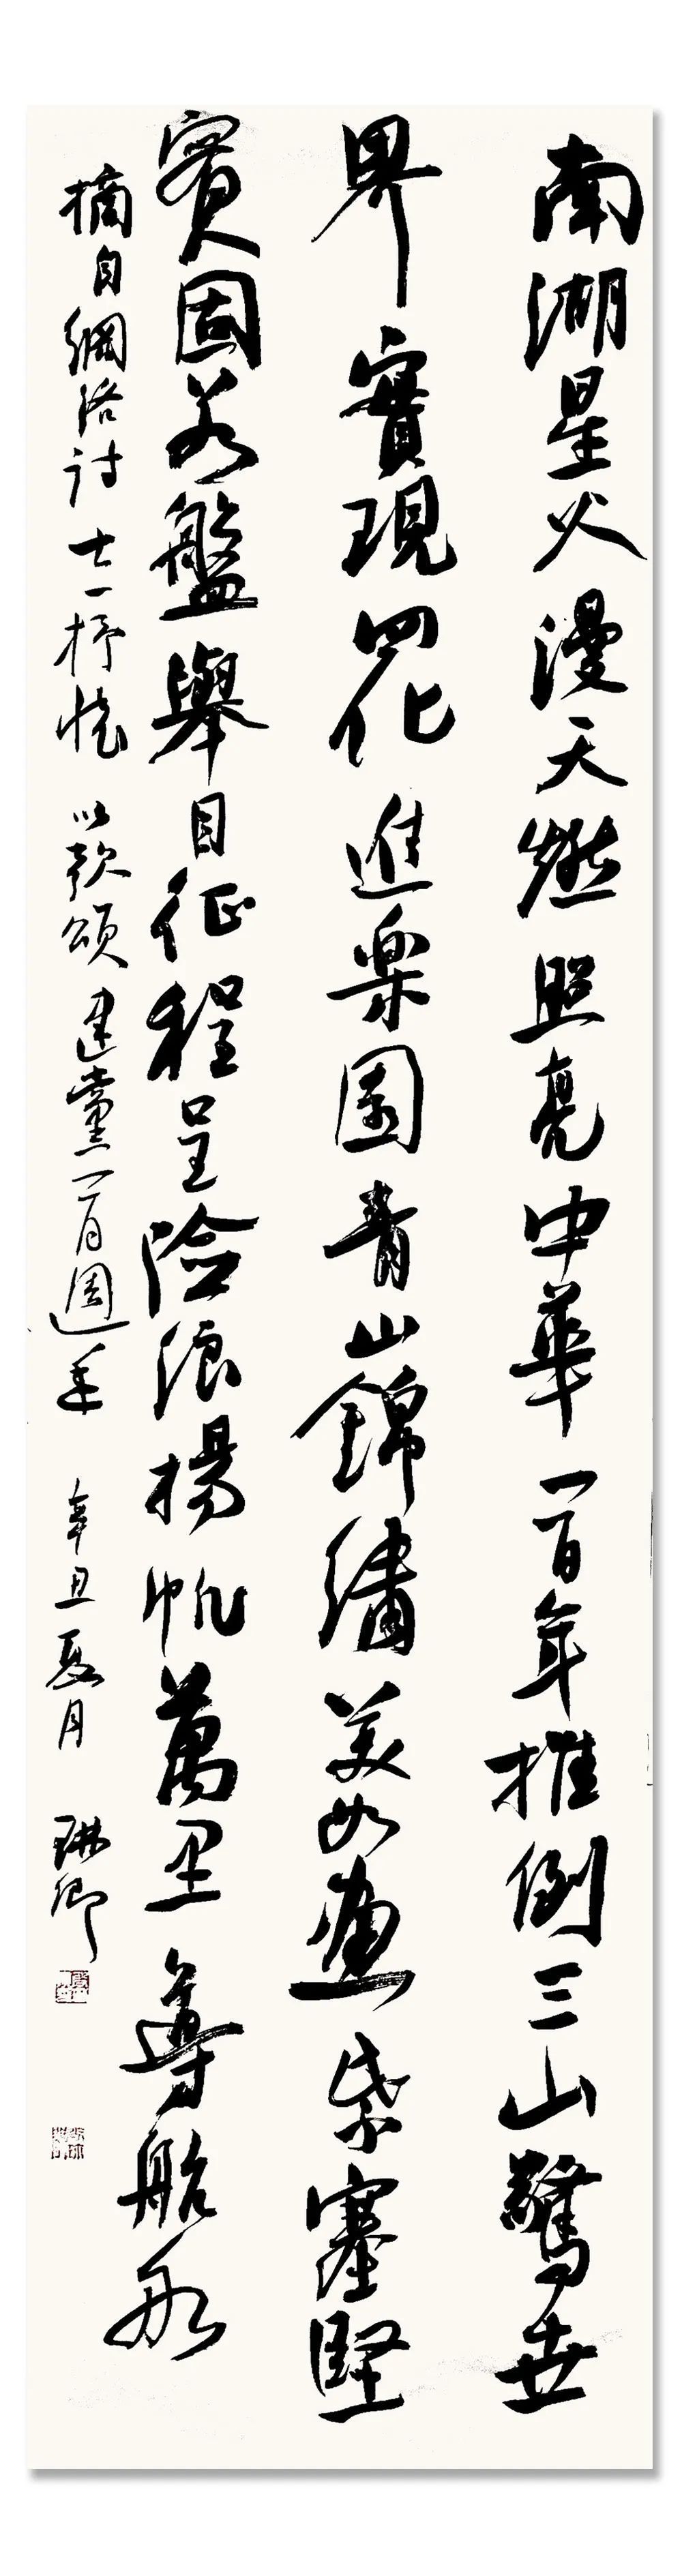 南湖星火漫天燃照亮中華一百年推倒三山驚世
界實現四化進樂園青山錦繡美如畫紫塞堅
實固若盤舉目征程呈險浪揚帆萬里導航船
摘自網絡詩七一抒懷以歌頌建黨一百週年辛丑夏月琳卿